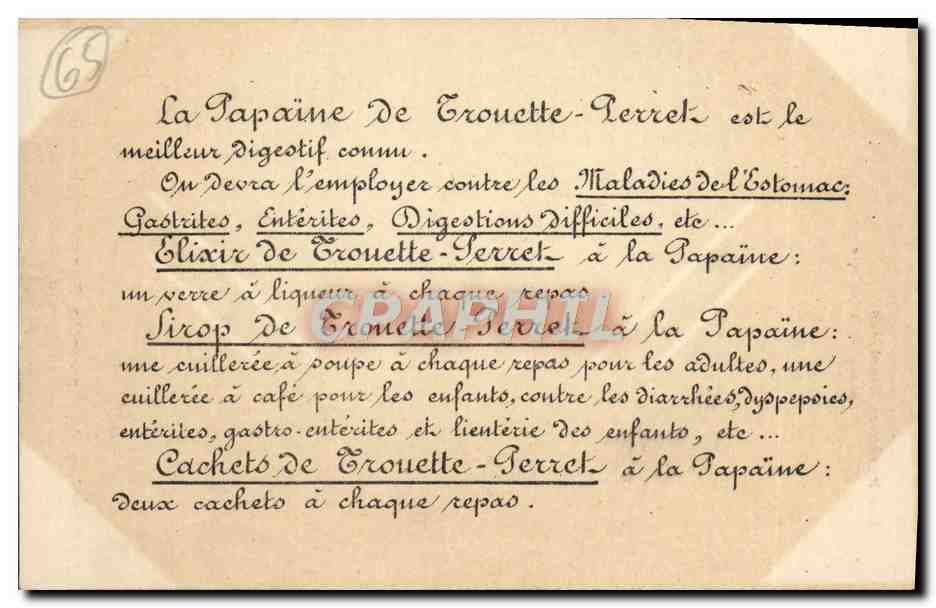 65
La Papaïne de Trouette-Perret est le
meilleur digestif connu.
On devra l'employer contre les Maladies de l'Estomac:
Gastrites, Entérites, Digestions difficiles, etc...
Elixir de Trouette-Perret à la Papaïne:
un verre à liqueur à chaque repas
GRAPHIL
Sirop de Trouette-Perret à la Papaïne:
une cuillerée à soupe à chaque repas pour les adultes, une
cuillerée à café pour les enfants, contre les diarrhées, dyspepsies,
entérites, gastro-entérites et lienterie des enfants, etc...
Cachets de Trouette-Perret à la Papaïne:
deux cachets à chaque repas.